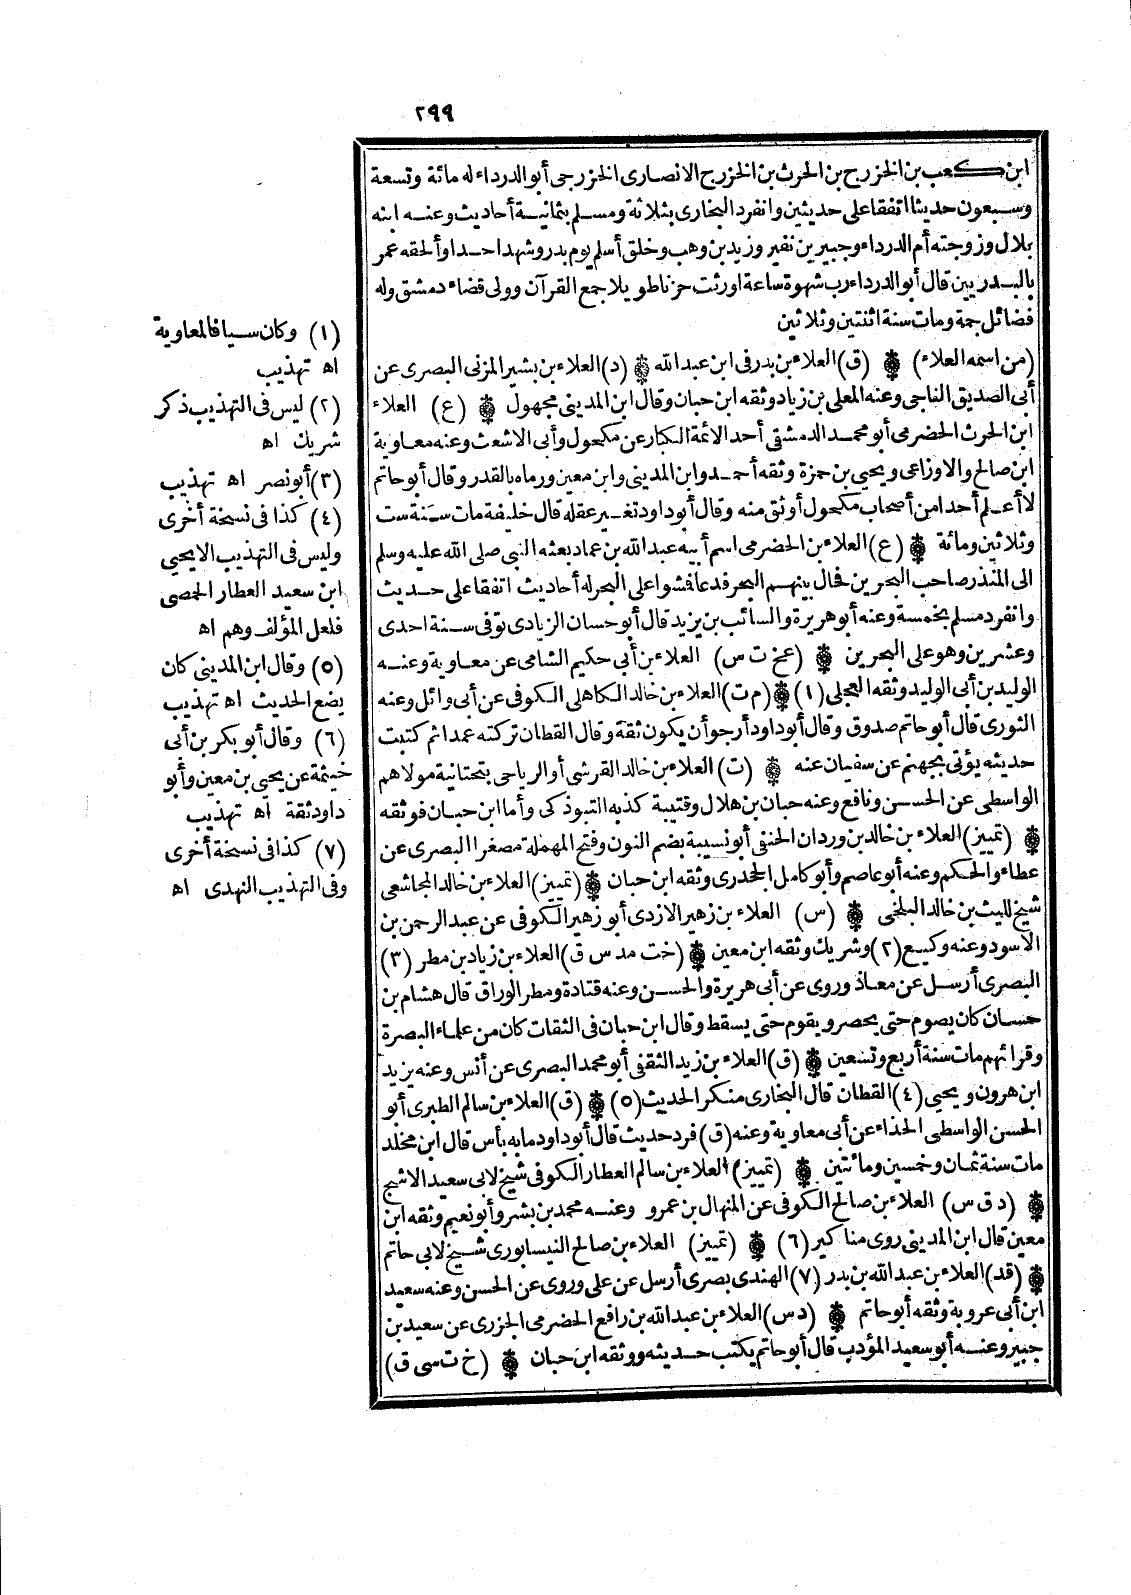 ٢٩٩
ابن كعب بن الخزرج بن الحرث بن الخزرج الانصارى الخزرجى أبو الدرداء له مائة وتسعة
وسبعون حديثا اتفقا على حديثين وانفرد البخارى بثلاثة ومسلم بثمانية أحاديث وعنه ابنه
بلال وزوجته أم الدرداء وجبير بن نفير وزيد بن وهب وخلق أسلم يوم بدر وشهد احدا وألحقه عمر
بالبدريين قال أبو الدرداء رب شهوة ساعة اورثت حزنا طويلا جمع القرآن وولى قضاء دمشق وله
فضائل جمة ومات سنة اثنتين وثلاثين
(من اسمه العلاء) (ق) العلاء بن بدر فى ابن عبد الله (د) العلاء بن بشير المزنى البصرى عن
أبى الصديق الناجى وعنه المعلى بن زياد وثقه ابن حبان وقال ابن المدينى مجهول (ع) العلاء
ابن الحرث الحضرمى أبو محمد الدمشقى أحد الائمة الكبار عن مكحول وأبى الاشعث وعنه معاوية
ابن صالح والاوزاعى ويحيى بن حمزة وثقه أحمد وابن المدينى وابن معين ورماه بالقدر وقال أبو حاتم
لا أعلم أحدا من أصحاب مكحول أوثق منه وقال أبو داود تغير عقله قال خليفة مات سنة ست
وثلاثين ومائة (ع) العلاء بن الحضرمى اسم أبيه عبد الله بن عماد بعثه النبى صلى الله عليه وسلم
الى المنذر صاحب البحرين فحال بينهم البحر فدعا فمشوا على البحر له أحاديث اتفقا على حديث
وانفرد مسلم بخمسة وعنه أبو هريرة والسائب بن يزيد قال أبو حسان الزيادى توفى سنة احدى
وعشرين وهو على البحرين (عخ ت س) العلاء بن أبى حكيم الشامى عن معاوية وعنه
الوليد بن أبى الوليد وثقه العجلى (١) (م ت) العلاء بن خالد الكاهلى الكوفى عن أبى وائل وعنه
الثورى قال أبو حاتم صدوق وقال أبو داود أرجو أن يكون ثقة وقال القطان تركته عمدا ثم كتبت
حديثه يؤتى بجهنم عن سفيان عنه (ت) العلاء بن خالد القرشى أو الرياحى بتحتانية مولاهم
الواسطى عن الحسن ونافع وعنه حبان بن هلال وقتيبة كذبه التبوذكى وأما ابن حبان فوثقه
(تمييز) العلاء بن خالد بن وردان الحنفى أبو نسيبة بضم النون وفتح المهملة مصغرا البصرى عن
عطاء والحكم وعنه أبو عاصم وأبو كامل الجحدرى وثقه ابن حبان (تمييز) العلاء بن خالد المجاشعى
شيخ لليث بن خالد البلخى (س) العلاء بن زهير الازدى أبو زهير الكوفى عن عبد الرحمن بن
الاسود وعنه وكيع (٢) وشريك وثقه ابن معين (خت مد س ق) العلاء بن زياد بن مطر (٣)
البصرى أرسل عن معاذ وروى عن أبى هريرة والحسن وعنه قتادة ومطر الوراق قال هشام بن
حسان كان يصوم حتى يحصر ويقوم حتى يسقط وقال ابن حبان فى الثقات كان من علماء البصرة
وقرائهم مات سنة أربع وتسعين (ق) العلاء بن زيد الثقفى أبو محمد البصرى عن أنس وعنه يزيد
ابن هرون ويحيى (٤) القطان قال البخارى منكر الحديث (٥) (ق) العلاء بن سالم الطبرى أبو
الحسن الواسطى الحذاء عن أبى معاوية وعنه (ق) فرد حديث قال أبو داود ما به بأس قال ابن مخلد
مات سنة ثمان وخمسين ومائتين (تمييز) العلاء بن سالم العطار الكوفى شيخ لابى سعيد الاشج
(د ق س) العلاء بن صالح الكوفى عن المنهال بن عمرو وعنه محمد بن بشر وأبو نعيم وثقه ابن
معين قال ابن المدينى روى مناكير (٦) (تمييز) العلاء بن صالح النيسابورى شيخ لابى حاتم
(قد) العلاء بن عبد الله بن بدر (٧) الهندى بصرى أرسل عن على وروى عن الحسن وعنه سعيد
ابن أبى عروبة وثقه أبو حاتم (د س) العلاء بن عبد الله بن رافع الحضرمى الجزرى عن سعيد بن
جبير وعنه أبو سعيد المؤدب قال أبو حاتم يكتب حديثه ووثقه ابن حبان (خ ت سى ق)
(١) وكان سيافا لمعاوية
اه تهذيب
(٢) ليس فى التهذيب ذكر
شريك اه
(٣) أبو نصر اه تهذيب
(٤) كذا فى نسخة أخرى
وليس فى التهذيب الا يحيى
ابن سعيد العطار الحمصى
فلعل المؤلف وهم اه
(٥) وقال ابن المدينى كان
يضع الحديث اه تهذيب
(٦) وقال أبو بكر بن أبى
خيثمة عن يحيى بن معين وأبو
داود ثقة اه تهذيب
(٧) كذا فى نسخة أخرى
وفى التهذيب النهدى اه